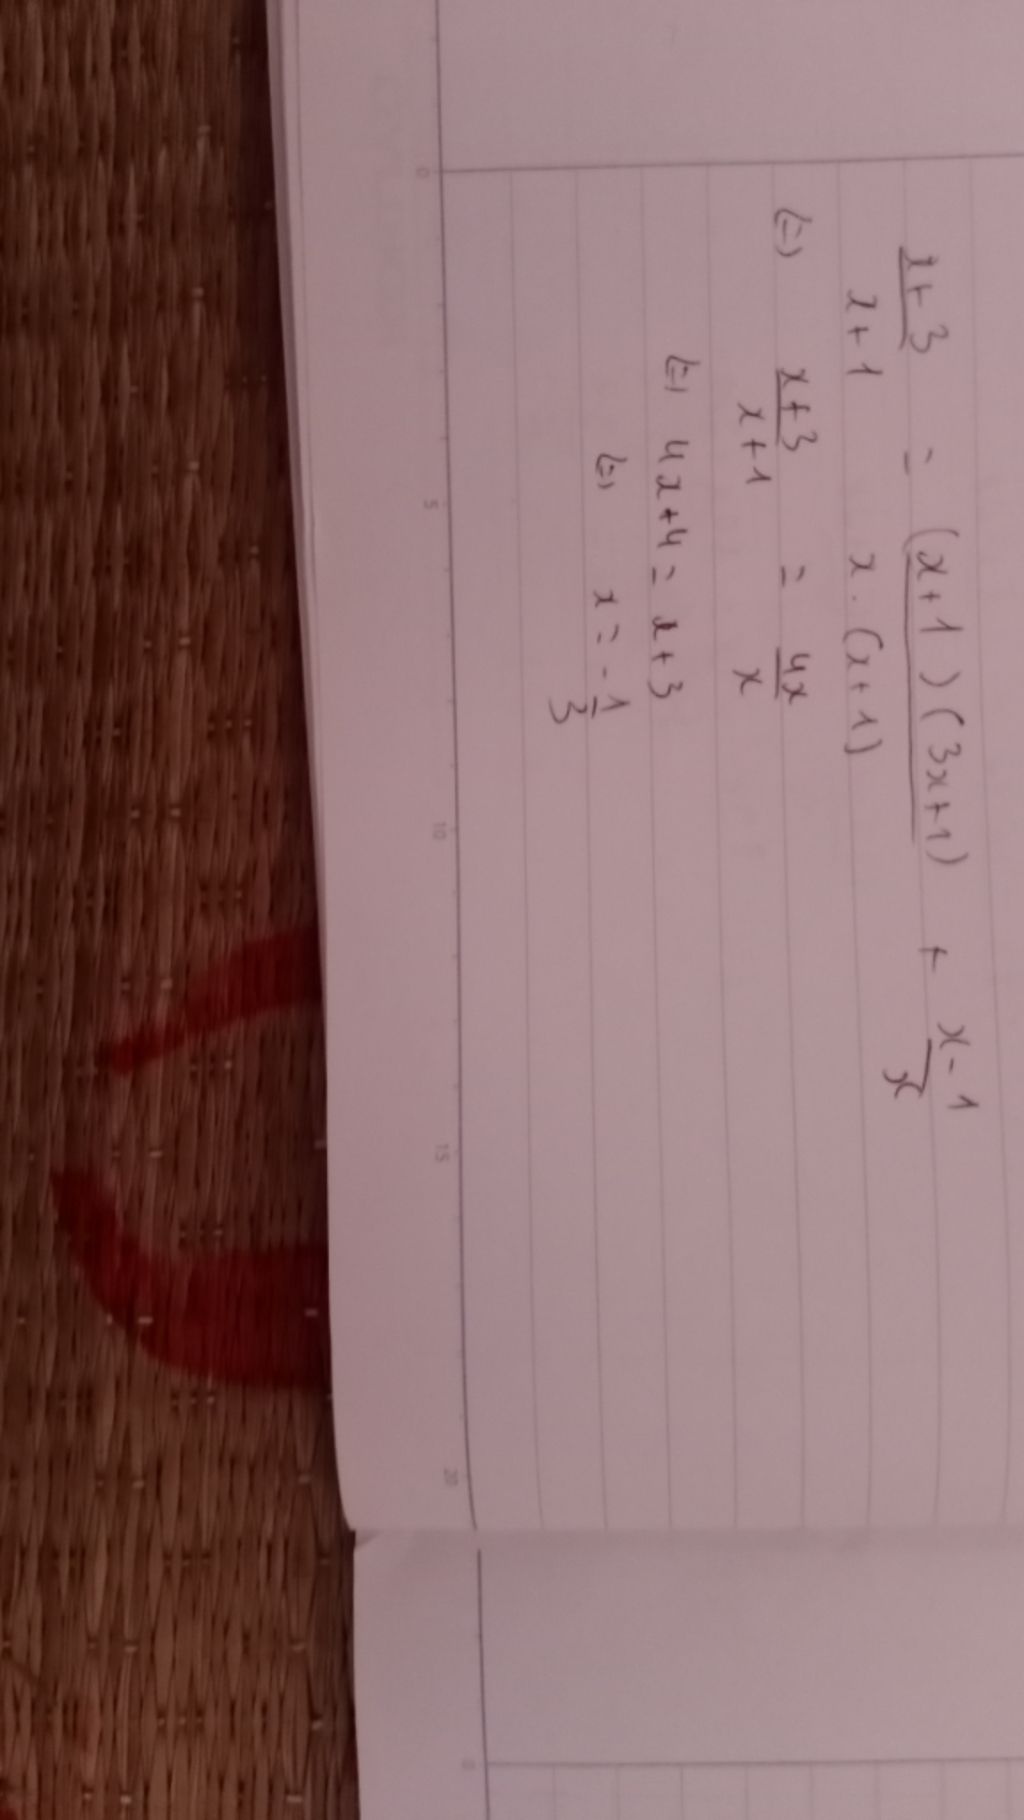 x+3/x+1 = (x+1)(3x+1)/x.(x+1) + x-1/x
(=) x+3/x+1 = 4x/x
(=) 4x+4 = x+3
(=) x = -1/3
0 5 10 15 20
0